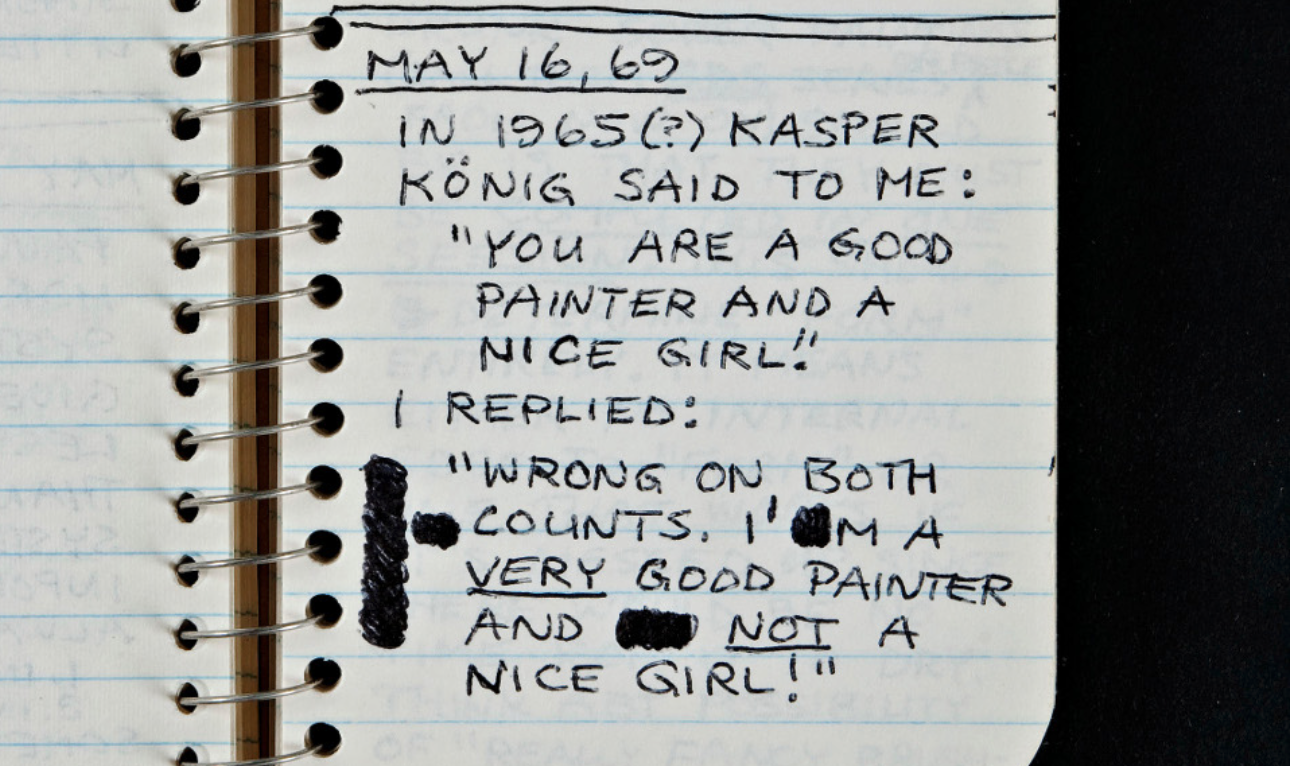 MAY 16, 69
IN 1965(?) KASPER
KÖNIG SAID TO ME:
"YOU ARE A GOOD
PAINTER AND A
NICE GIRL."
I REPLIED:
"WRONG ON BOTH
COUNTS. I'M A
VERY GOOD PAINTER
AND NOT A
NICE GIRL!"